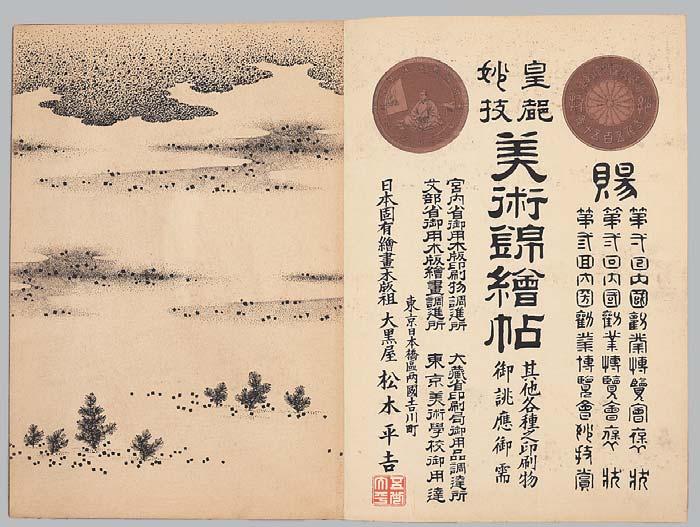 賜
第弐回内國勸業博覽會褒狀
第弐回内國勸業博覽會褒狀
第弐回内國勸業博覽會妙技賞
皇
妙技
美術錦繪帖
其他各種之印刷物
御誂應御需
宮内省御用木版印刷物調進所 大藏省印刷局御用品調達所
文部省御用木版繪畫調進所 東京美術學校御用達
東京日本橋區兩國吉川町
日本固有繪畫木版祖 大黒屋 松木平吉